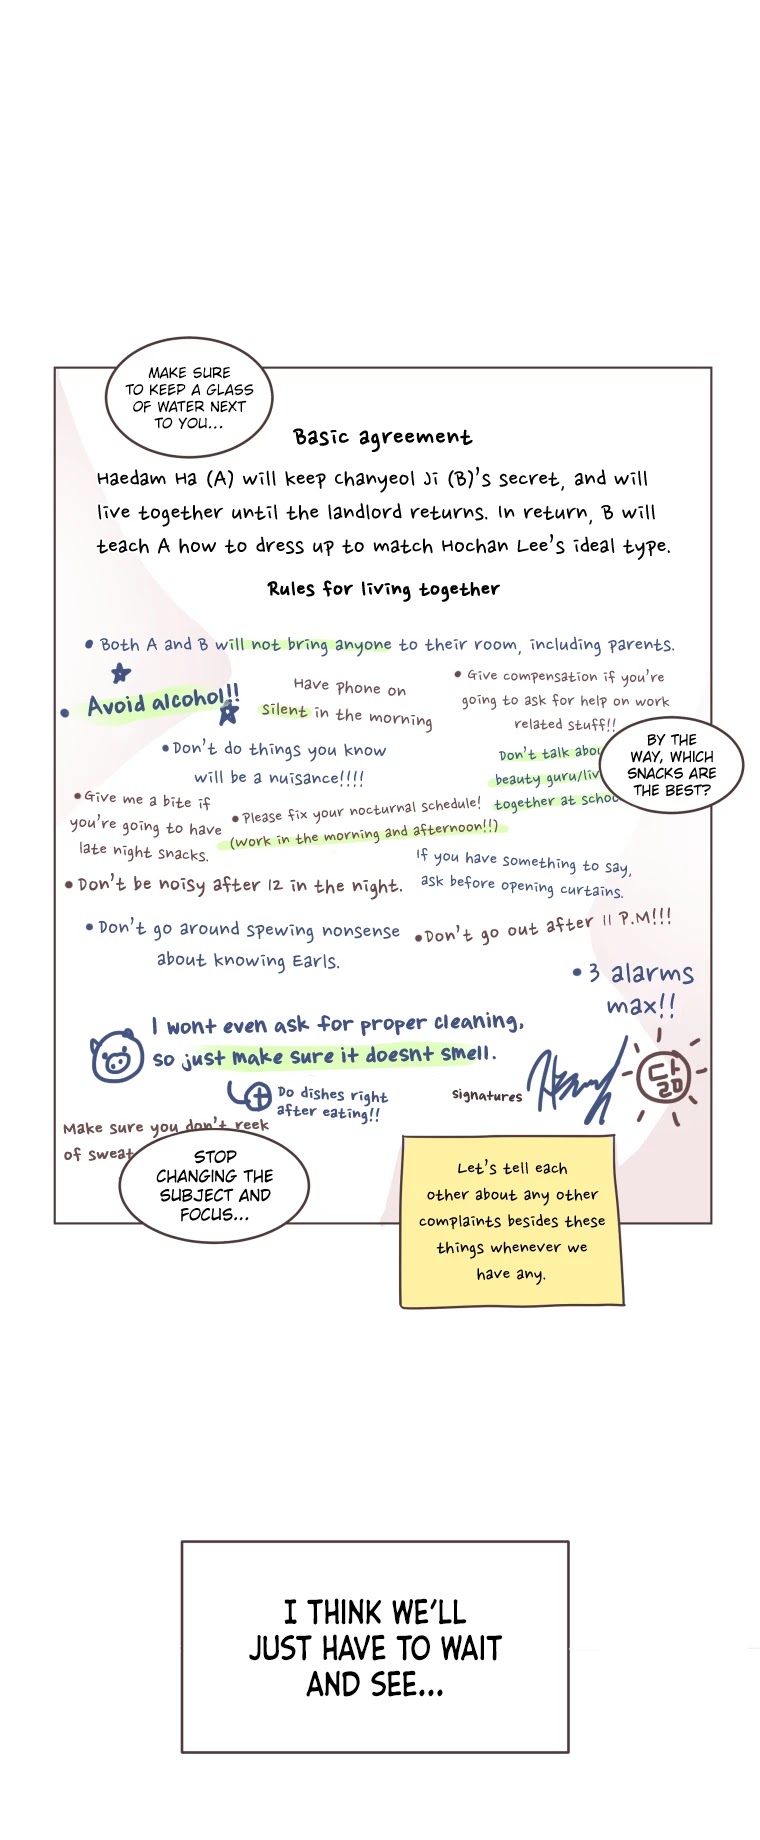 MAKE SURE
TO KEEP A GLASS
OF WATER NEXT
TO YOU...
Basic agreement
Haedam Ha (A) will keep Chanyeol Ji (B)'s secret, and will
live together until the landlord returns. In return, B will
teach A how to dress up to match Hochan Lee's ideal type.
Rules for living together
• Both A and B will not bring anyone to their room, including parents.
• Avoid alcohol!!
Have phone on
silent in the morning
• Give compensation if you're
going to ask for help on work
related stuff!!
• Don't do things you know
will be a nuisance!!!!
Don't talk abou
beauty guru/liv
together at schoo
BY THE
WAY, WHICH
SNACKS ARE
THE BEST?
• Give me a bite if
you're going to have
late night snacks.
• Please fix your nocturnal schedule!
(work in the morning and afternoon!!)
If you have something to say,
ask before opening curtains.
• Don't be noisy after 12 in the night.
• Don't go around spewing nonsense
about knowing Earls.
• Don't go out after 11 P.M!!!
• 3 alarms
max!!
I wont even ask for proper cleaning,
so just make sure it doesnt smell.
Do dishes right
after eating!!
signatures
담
Make sure you don't reek
of sweat
STOP
CHANGING THE
SUBJECT AND
FOCUS...
Let's tell each
other about any other
complaints besides these
things whenever we
have any.
I THINK WE'LL
JUST HAVE TO WAIT
AND SEE...